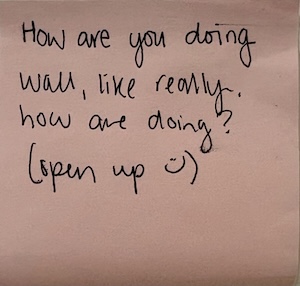 How are you doing
wall, like really.
how are doing?
(open up ☺)